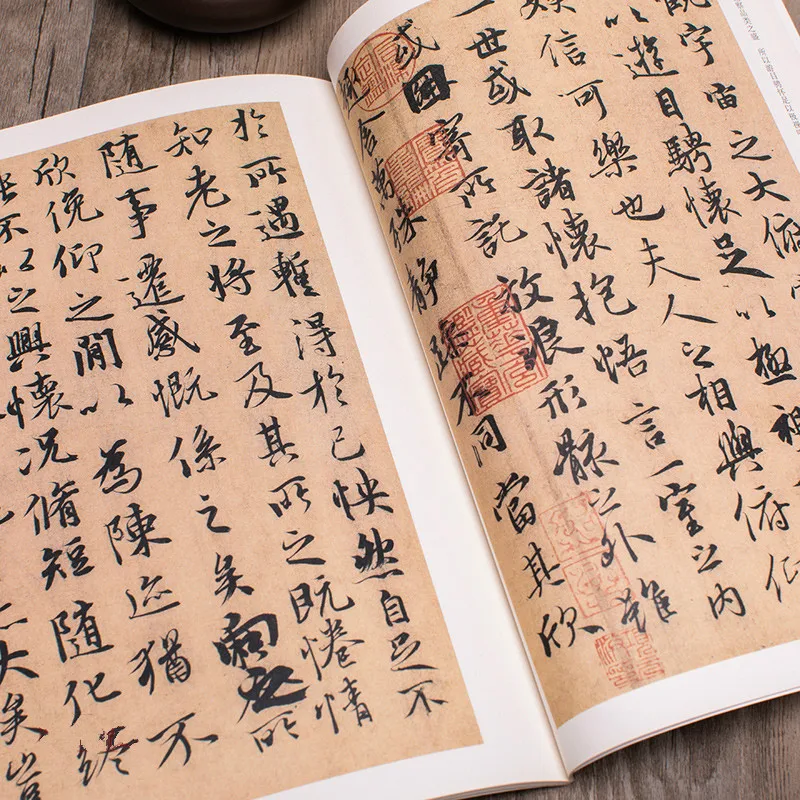 類之盛 所以遊目騁懷足以極視
宇宙之大俯
以遊目騁懷足以極視
娛信可樂也夫人之相與俯仰
一世或取諸懷抱悟言一室之內
或因寄所託放浪形骸之外雖
趣舍萬殊靜躁不同當其欣
於所遇暫得於己怏然自足不
知老之將至及其所之既惓情
隨事遷感慨係之矣向之所
欣俛仰之閒以為陳迹猶不
不以之興懷況脩短隨化終
大矣豈